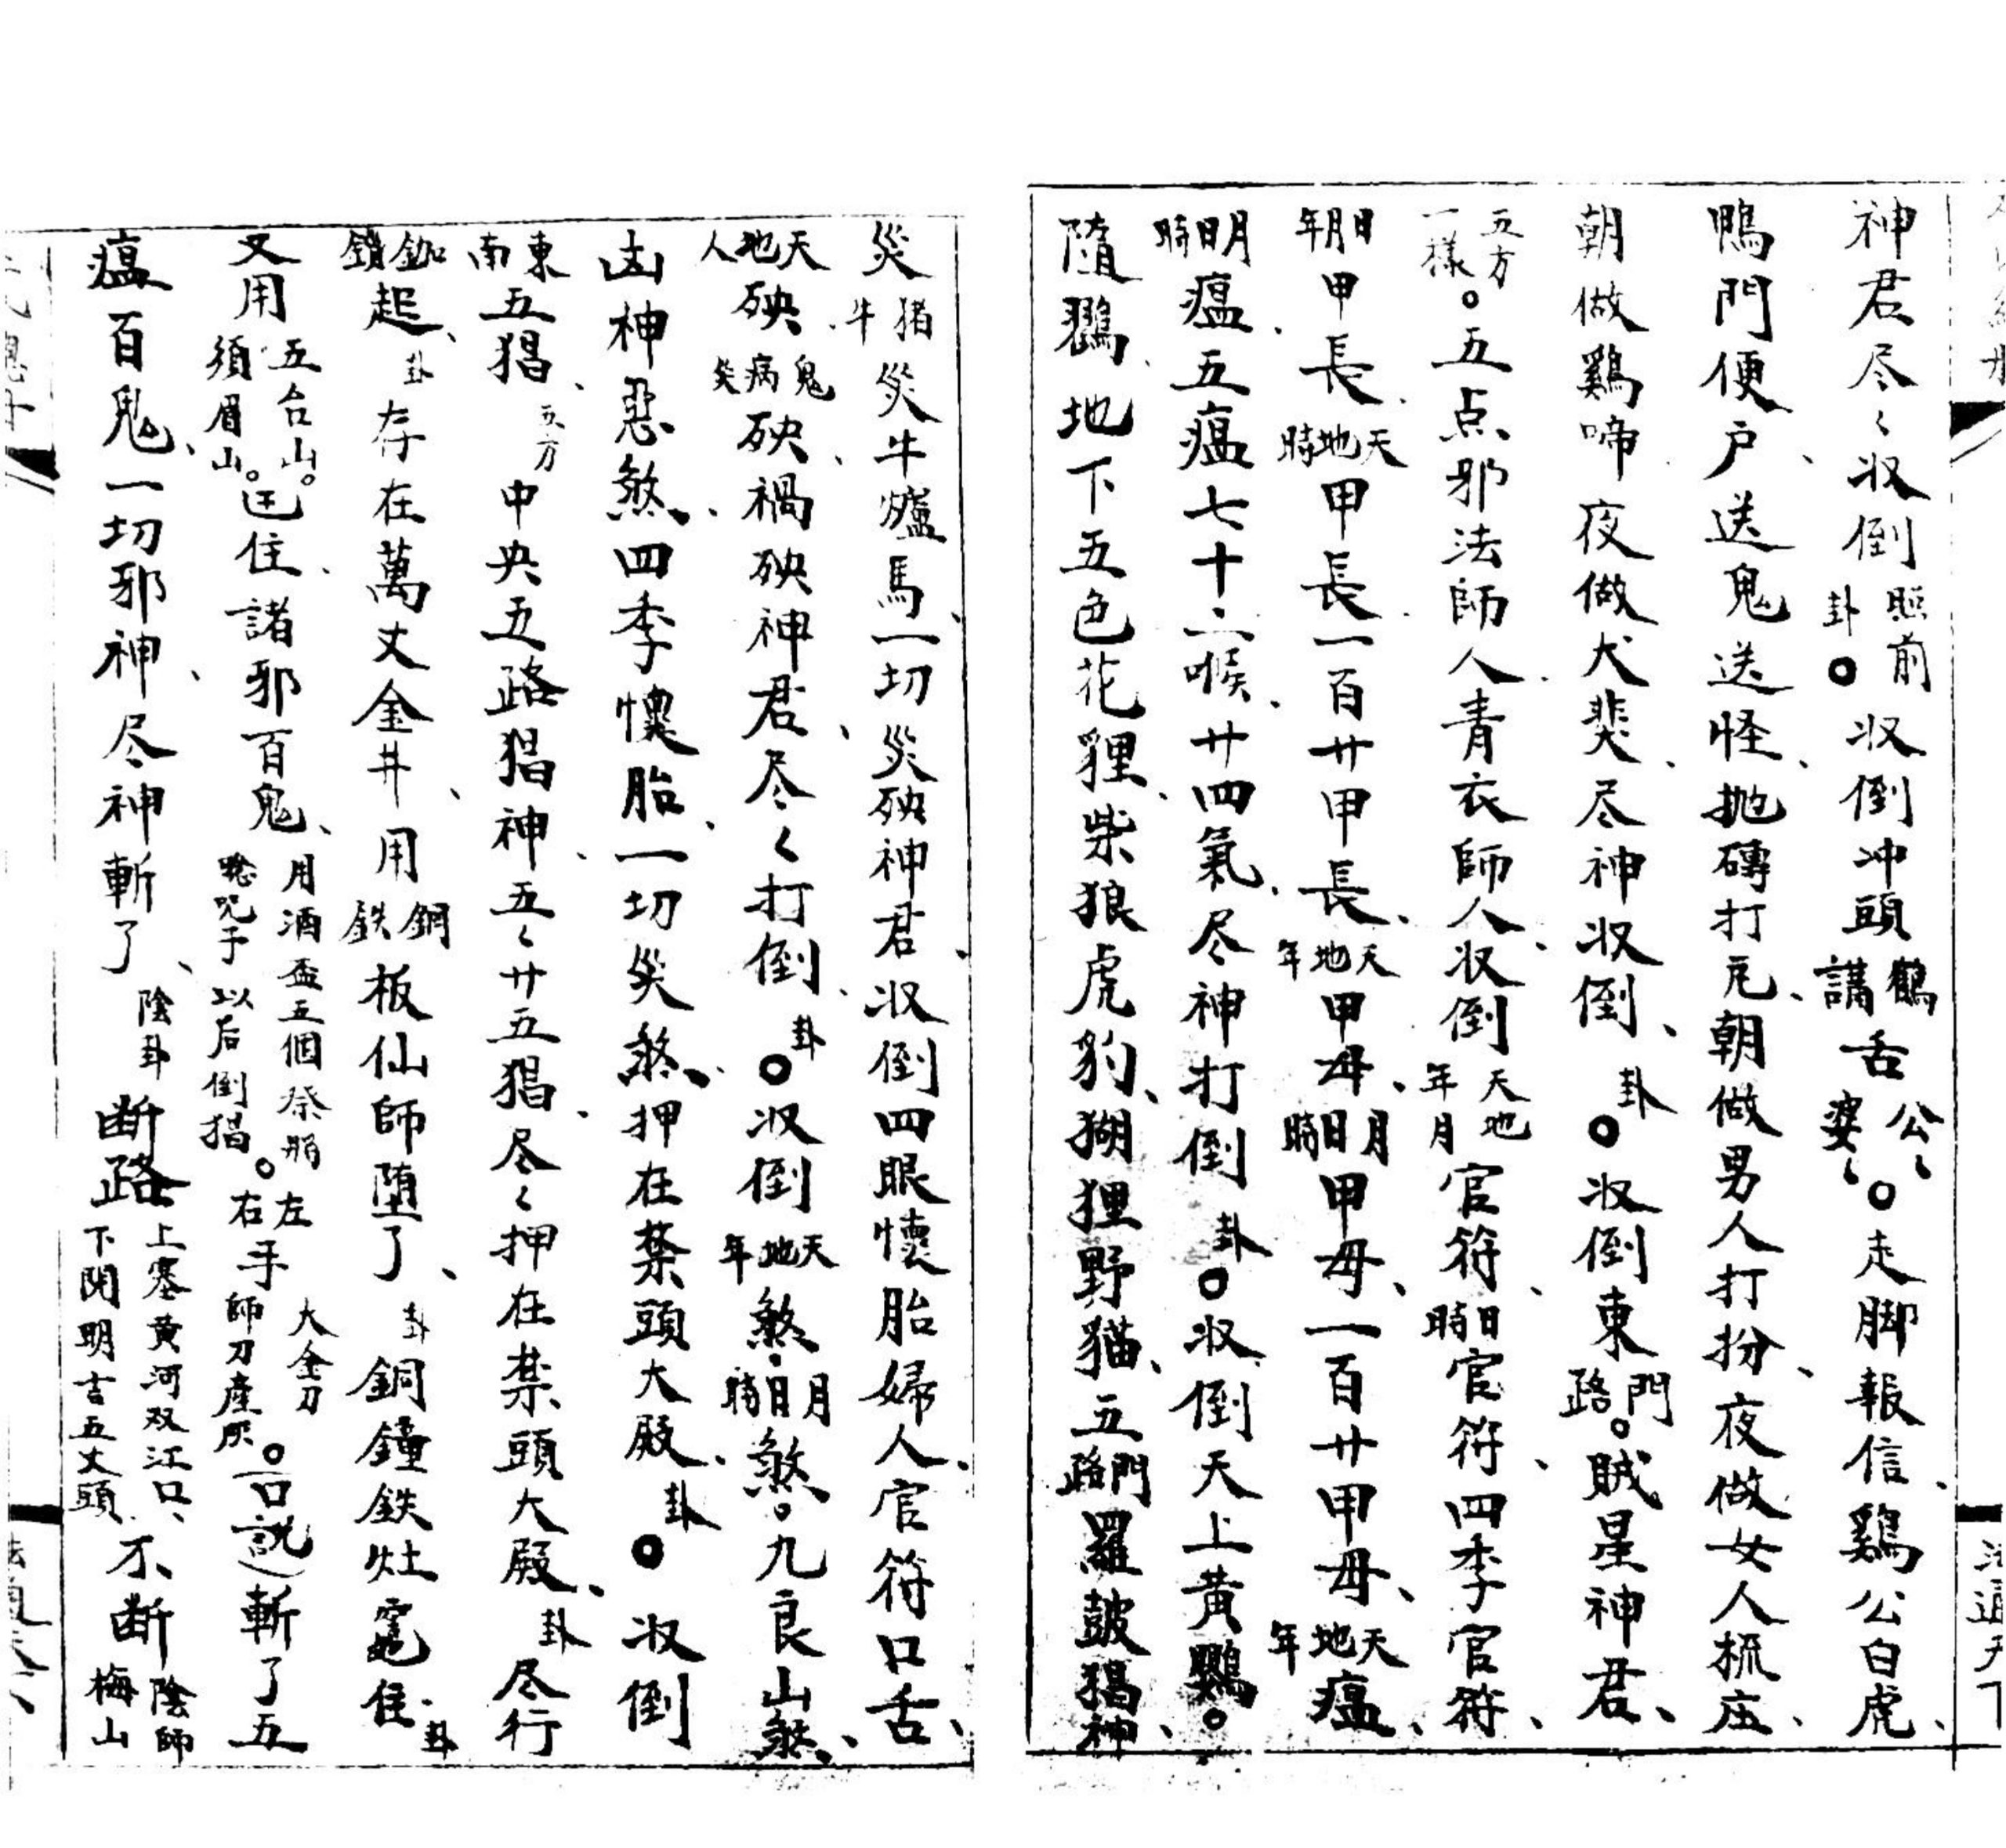 神君尽々収倒照前卦○収倒冲頭鶴講舌公婆々○走脚報信、鷄公白虎、
鴨門便户、送鬼送怪、抛磚打瓦、朝做男人打扮、夜做女人梳庄、
朝做鷄啼夜做犬、尽神収倒、卦○収倒東門路。賊星神君、
五方一樣。五点邪法師人、青衣師人、収倒天地年月官符、日時官符、四季官符、
日月年甲長、天地時甲長、一百廿甲長、天地年甲毋、月日時甲毋、一百廿甲毋、天地年瘟、
月日時瘟、五瘟七十二喉、廿四氣、尽神打倒卦○収倒天上黃鸚。
隨鸚、地下五色花狸、柴狼虎豹、猢狸野猫、五門路羅鼓猖神、
災猪牛災牛爐馬、一切災殃神君、収倒四眼懷胎婦人、官符口舌、
天地人殃、鬼病災殃、禍殃神君、尽々打倒、卦○収倒天地年煞、月日時煞。九良山煞、
凶神惡煞、四季懷胎、一切災煞、押在禁頭大殿、卦○収倒
東南五猖、五方中央五路猖神、五々廿五猖、尽々押在禁頭大殿、卦尽行
鎖起、卦存在萬丈金井、用銅鉄板仙師墮了、卦銅鐘鉄灶住、卦
又用五台山。須眉山。住、諸邪百鬼、用酒盃五個祭猖念咒于以后倒猖。左右手大金刀師刀產灰。(口説)斬了五
瘟百鬼、一切邪神、尽神斬了、陰卦断路上塞黄河双江口、下開明吉五丈頭、不断陰師梅山